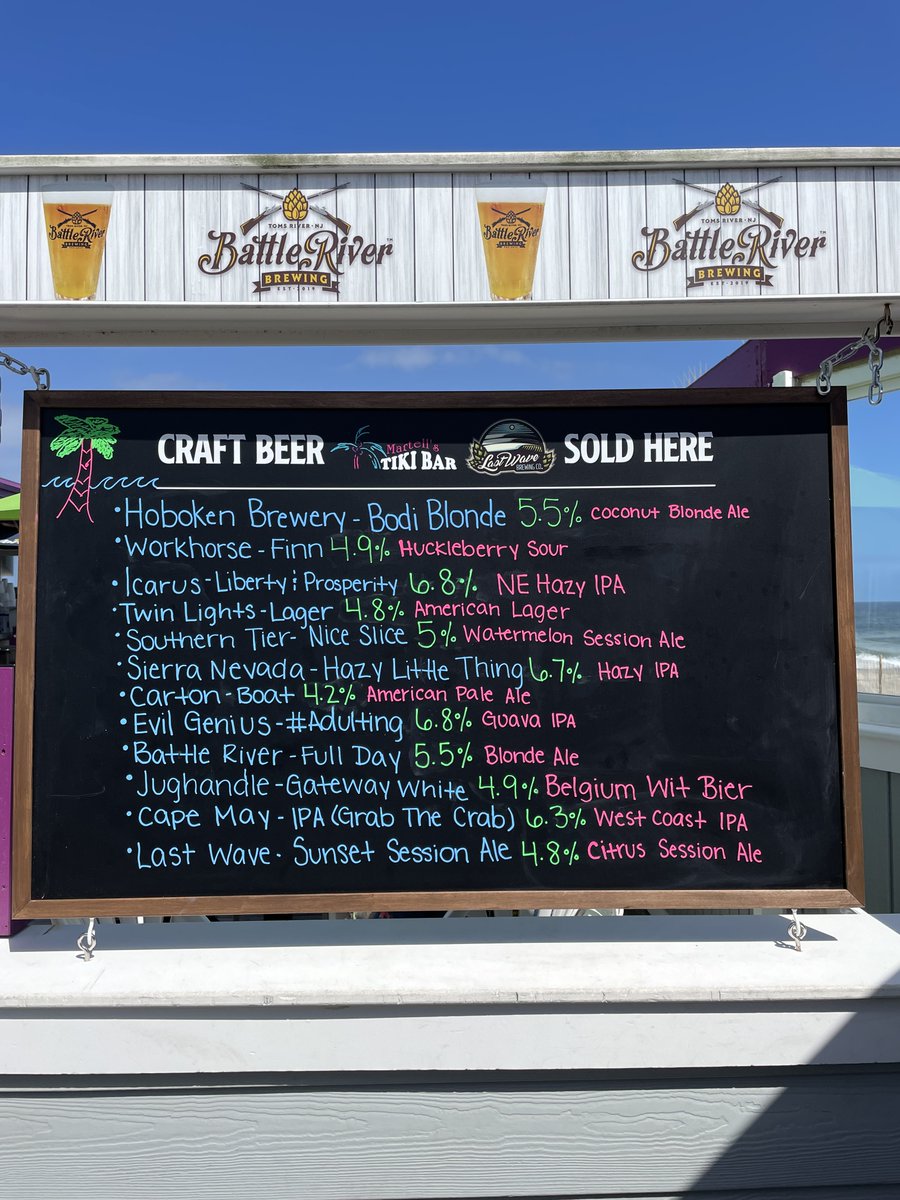 TOMS RIVER · NJ
Battle River™
BREWING
EST·2019
TOMS RIVER · NJ
Battle River™
BREWING
EST·2019
Battle River
BREWING
Battle River
BREWING
CRAFT BEER Martell's TIKI BAR Last Wave BREWING CO. SOLD HERE
•Hoboken Brewery - Bodi Blonde 5.5% Coconut Blonde Ale
•Workhorse - Finn 4.9% Huckleberry Sour
•Icarus - Liberty & Prosperity 6.8% NE Hazy IPA
•Twin Lights - Lager 4.8% American Lager
•Southern Tier - Nice Slice 5% Watermelon Session Ale
•Sierra Nevada - Hazy Little Thing 6.7% Hazy IPA
•Carton - Boat 4.2% American Pale Ale
•Evil Genius - #Adulting 6.8% Guava IPA
•Battle River - Full Day 5.5% Blonde Ale
•Jughandle - Gateway White 4.9% Belgium Wit Bier
•Cape May - IPA (Grab The Crab) 6.3% West Coast IPA
•Last Wave - Sunset Session Ale 4.8% Citrus Session Ale